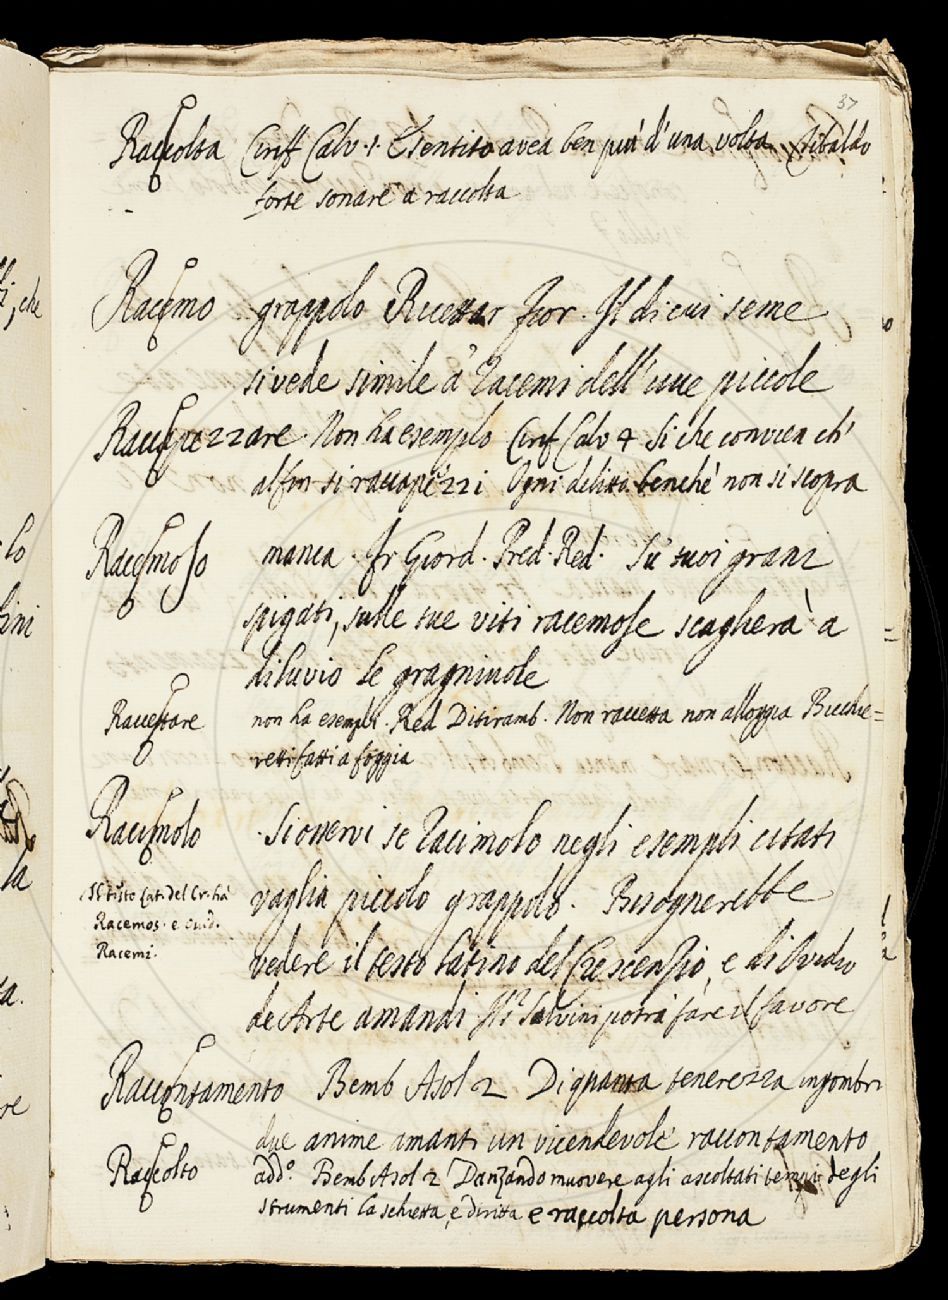 37
Raccolta Ciriff Calv. 1. E sentito avea ben piu d'una volta Tibaldo
forte sonare a raccolta
Racemo grappolo Ricettar Fior. Il di cui seme
si vede simile a' racemi dell'uue piccole
Raccapezzare. Non ha esemplo Cirif Calv 4 Si che convien ch'
al fin si raccapezzi Ogni delitto benche' non si scopra
Racemoso manca. fr Giord. Pred. Red. Su' tuoi grani
spigati, sulle tue viti racemose scagherà a
diluvio le gragniuole
Raccettare non ha esempli. Red Ditiramb. Non raccetta non alloggia Bicchie=
retti fatti a foggia
Racimolo. Si osservi se racimolo negli esempli citati
vaglia piccolo grappolo. Bisognerebbe
Il testo Lat. del Cr. ha
Racemos. e Ouid.
Racemi.
vedere il testo latino del Crescenzio, e di Ovidio
de Arte amandi Il Sr. Salvini potrà fare il favore
Raccontamento Bemb Asol 2 Di quanta tenerezza ingombri
due anime amanti un vicendevole raccontamento
Raccolto add.o Bemb Asol 2 Danzando muovere agli ascoltati tempi degli
strumenti la schietta, e diritta e raccolta persona